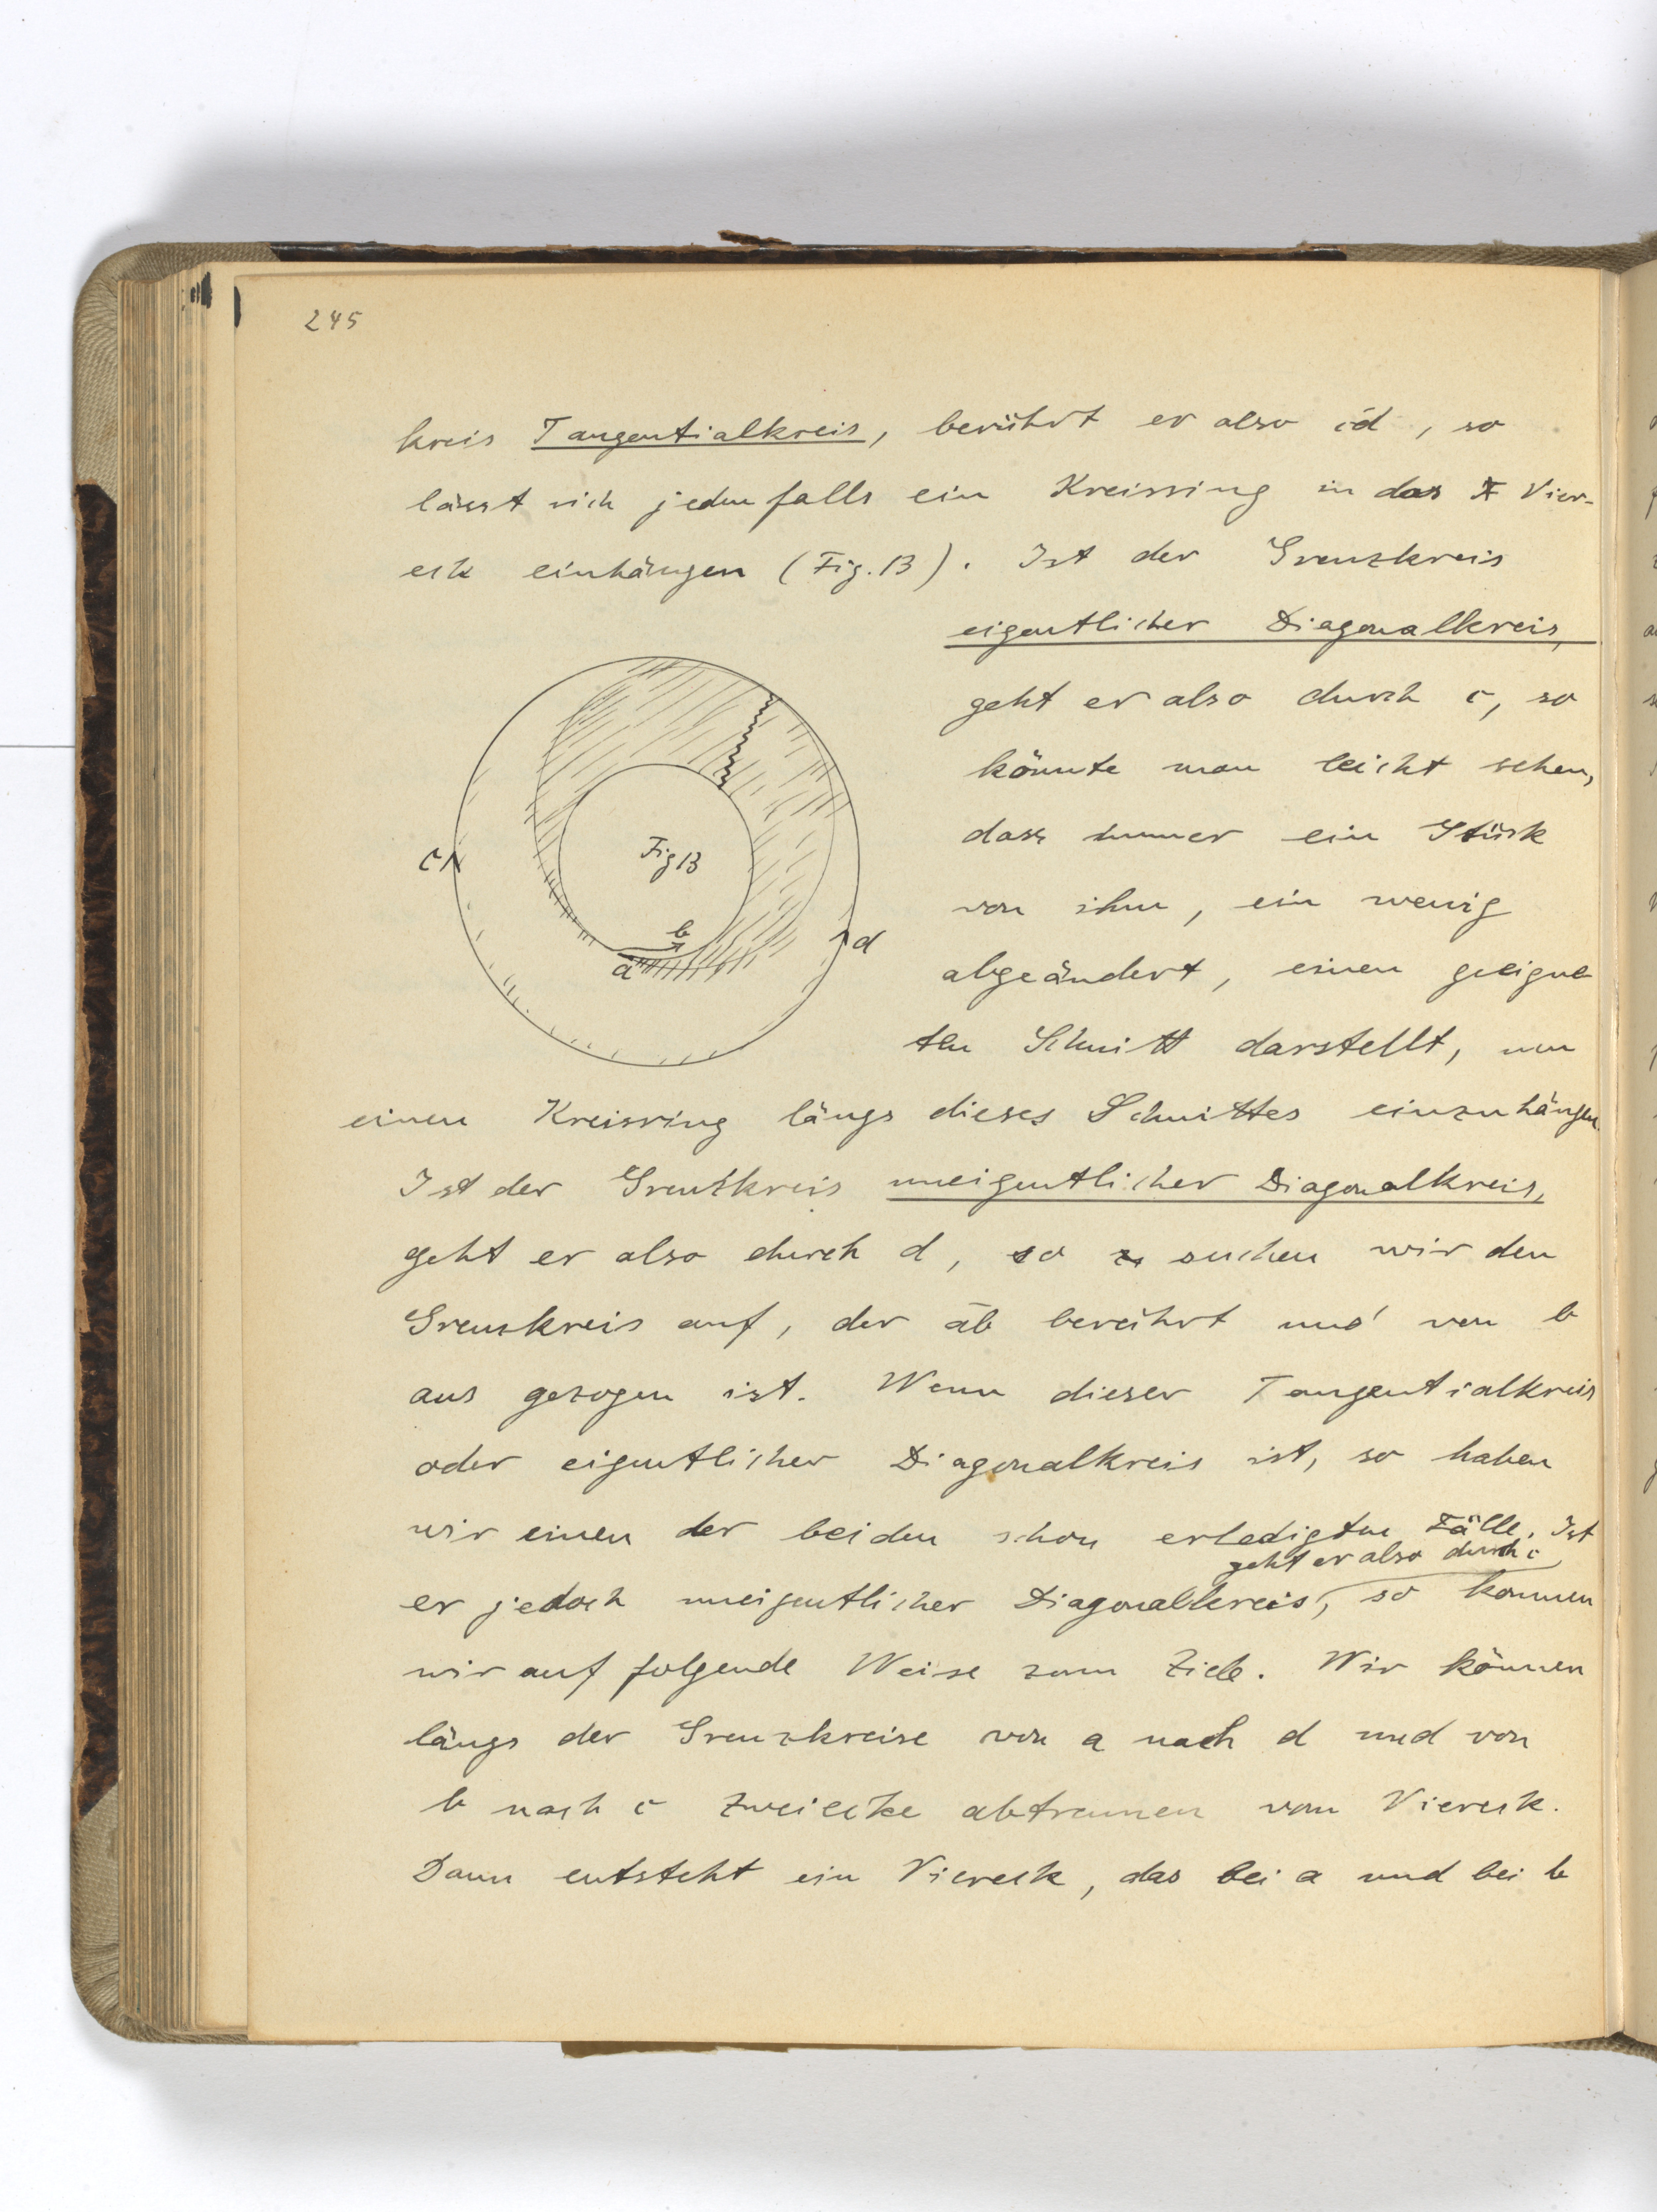 245
kreis Tangentialkreis, berührt er also c̄d, so
lässt sich jedenfalls ein Kreisring in das Vier-
eck einhängen (Fig. 13). Ist der Grenzkreis
eigentlicher Diagonalkreis,
geht er also durch c, so
könnte man leicht sehen,
dass immer ein Stück
von ihm, ein wenig
abgeändert, einen geeigne
ten Schnitt darstellt, um
einen Kreisring längs dieses Schnittes einzuhängen.
Ist der Grenzkreis uneigentlicher Diagonalkreis,
geht er also durch d, so suchen wir den
Grenzkreis auf, der āb berührt und von b
aus gezogen ist. Wenn dieser Tangentialkreis
oder eigentlicher Diagonalkreis ist, so haben
wir einen der beiden schon erledigten Fälle. Ist
geht er also durch c
er jedoch uneigentlicher Diagonalkreis, so kommen
wir auf folgende Weise zum Ziele. Wir können
längs der Grenzkreise von a nach d und von
b nach c Zweiecke abtrennen vom Viereck.
Dann entsteht ein Viereck, das bei a und bei b
c
Fig 13
b
a
d